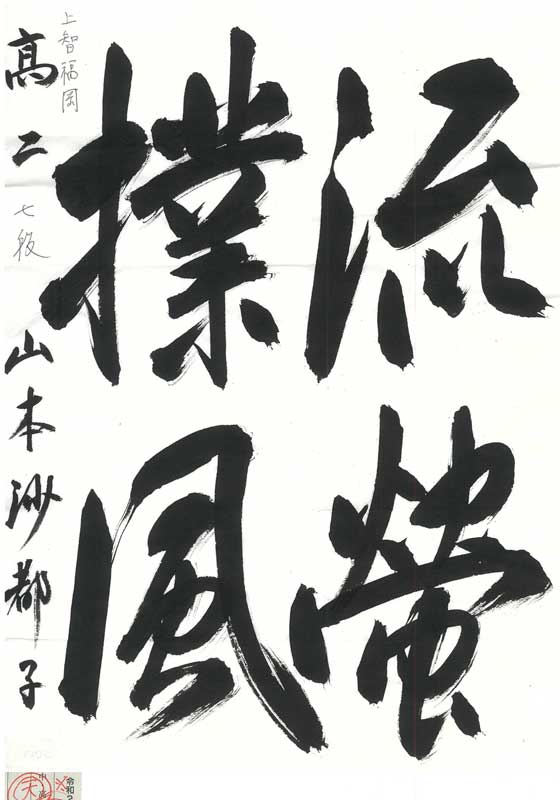 流螢
撲風
上智福岡
高二 七段 山本沙都子
令和2